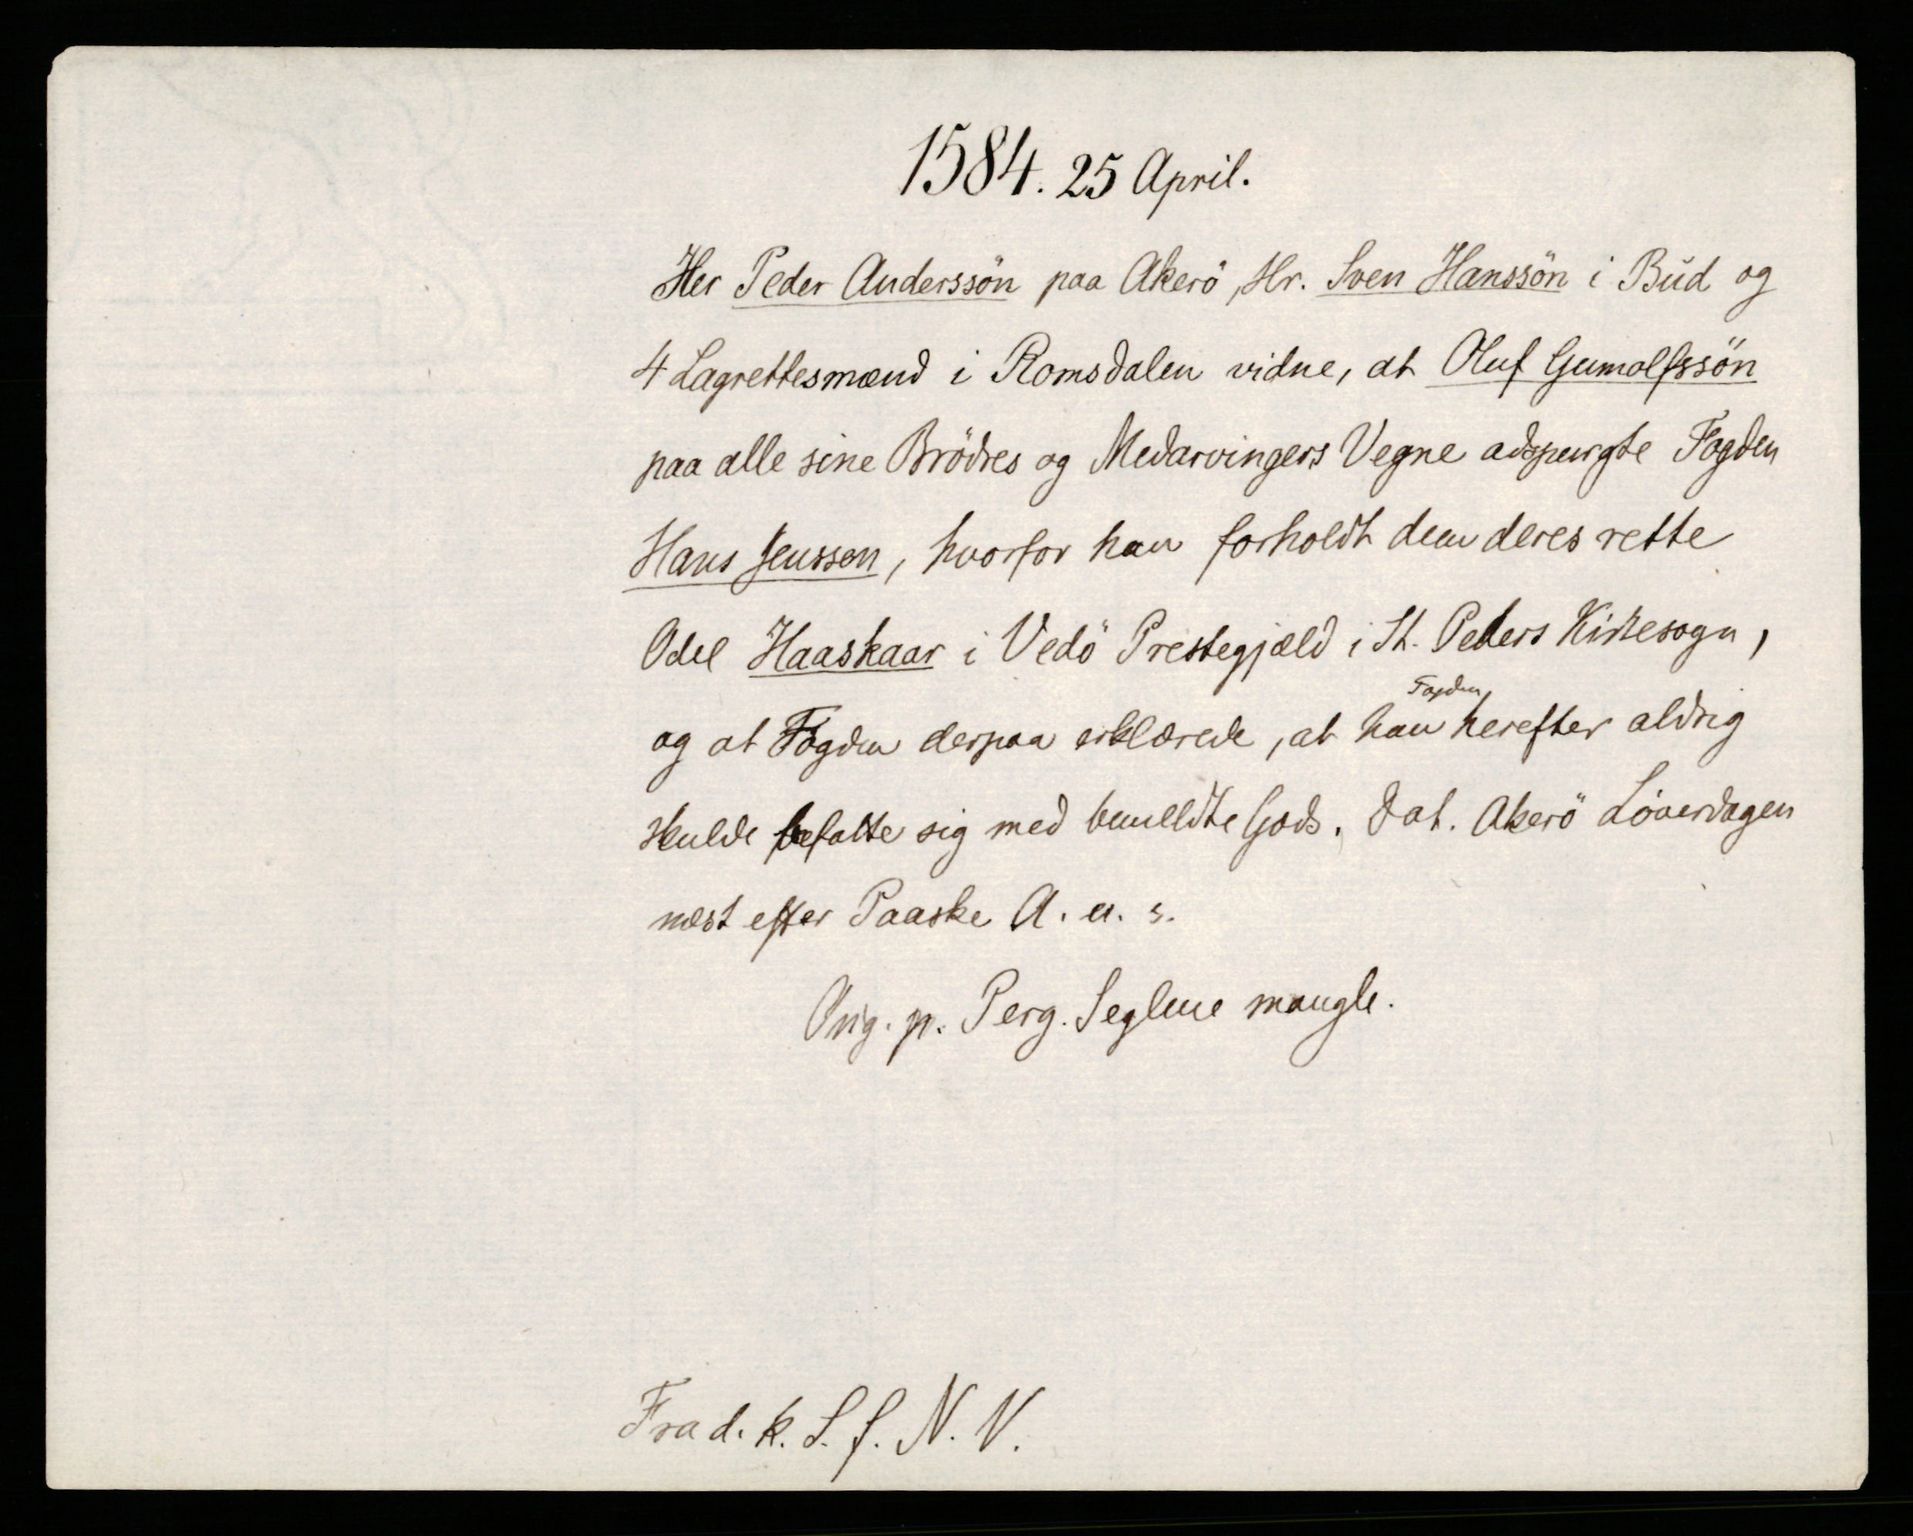 1584. 25 April.
Her Peder Anderssön paa Akerö, Hr. Sven Hanssön i Bud og
4 Lagrettesmænd i Romsdalen vidne, at Oluf Gumolfssön
paa alle sine Brödres og Medarvingers Vegne adspurgte Fogden
Hans Jenssen, hvorfor han forholdt dem deres rette
Odel Haaskaar i Vedö Prestegjæld i St. Peders Kirkesogn,
Fogden
og at Fogden derpaa erklærede, at han herefter aldrig
skulde befatte sig med bemeldte Gods. Dat. Akerö Löverdagen
næst efter Paaske A. u. s.
Orig. p. Perg. Seglene mangle.
Fra d. k. S. f. N. V.